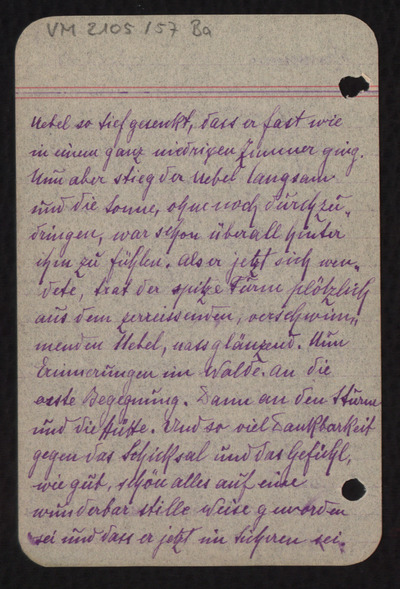 VM 2105/57 Ba
Nebel so tief gesenkt, dass er fast wie
in einem ganz niedrigen Zimmer ging.
Nun aber stieg der Nebel langsam
und die Sonne, ohne noch durchzu„
dringen, war schon überall hinter
ihm zu fühlen. Als er jetzt sich wen„
dete, trat der spitze Turm plötzlich
aus dem zerreissenden, verschwim„
menden Nebel, nassglänzend. Nun
Erinnerungen im Walde. An die
erste Begegnung. Dann an den Sturm
und die Hütte. Und so viel Dankbarkeit
gegen das Schicksal und das Gefühl,
wie gut, schön alles auf eine
wunderbar stille Weise geworden
sei und dass er jetzt im Sicheren sei.